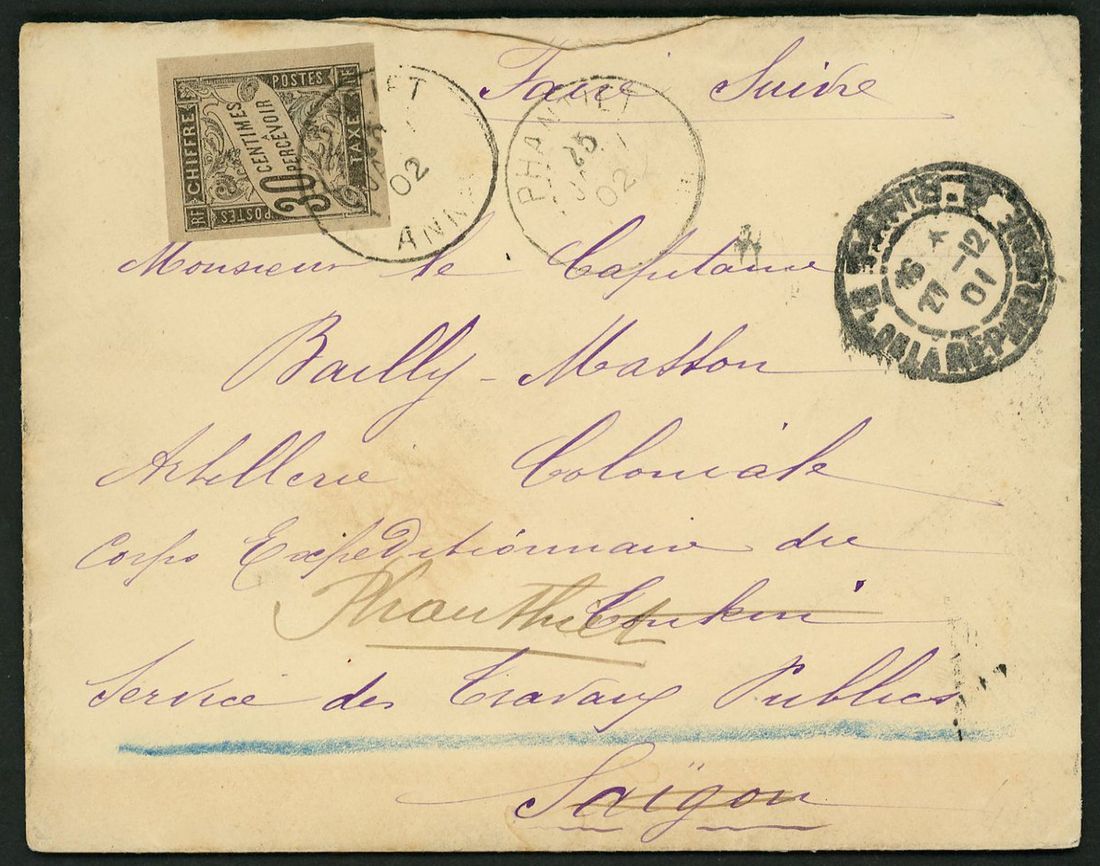 Faire Suivre
RF CHIFFRE POSTES TAXE RF POSTES
30 CENTIMES
PERCEVOIR
02
ANNAM
PHANTIET
25
02
PARIS
PL. DE LA REPUBLIQUE
16 *
27 -12
01
Monsieur le Capitaine
Bailly-Masson
Artillerie Coloniale
Corps Expéditionnaire du
Tonkin
Phanthiet
Service des Travaux Publics
Saïgon